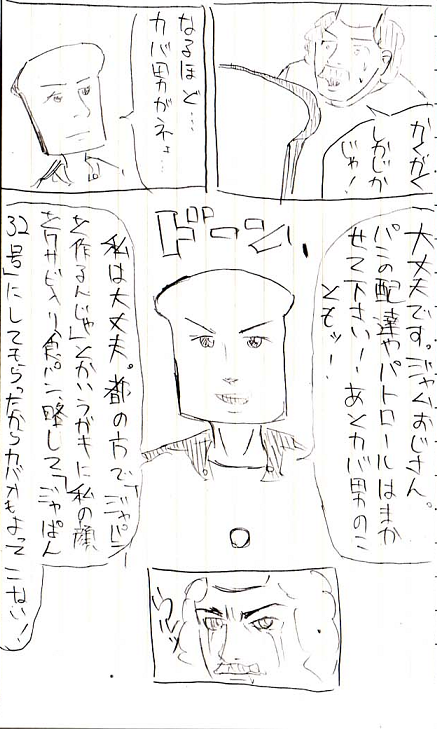 かくがく
しかじか
じゃ!
なるほど…
カバ男がネェ…
大丈夫です。ジャムおじさん。
パンの配達やパトロールはまか
せて下さい!あとカバ男のこ
ともッ!
ドドーン
私は大丈夫。都の方で「ジャぱん
を作るんじゃ」とかいうガキに私の顔
をワサビ入り食パン、略して「ジャぱん
32号」にしてもらったからカバ男もよって
こない!